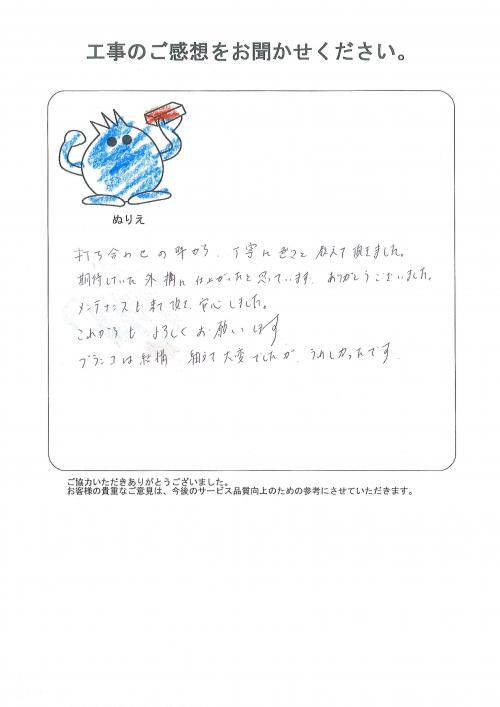 工事のご感想をお聞かせください。
ぬりえ
打ち合わせの時から、丁寧に 教えて頂きました。
期待していた外構に仕上がったと思っています。ありがとうございました。
メンテナンスも来て頂き、安心しました。
これからもよろしくお願いします
ブランコは結構 大変でしたが、うれしかったです。
ご協力いただきありがとうございました。
お客様の貴重なご意見は、今後のサービス品質向上のための参考にさせていただきます。